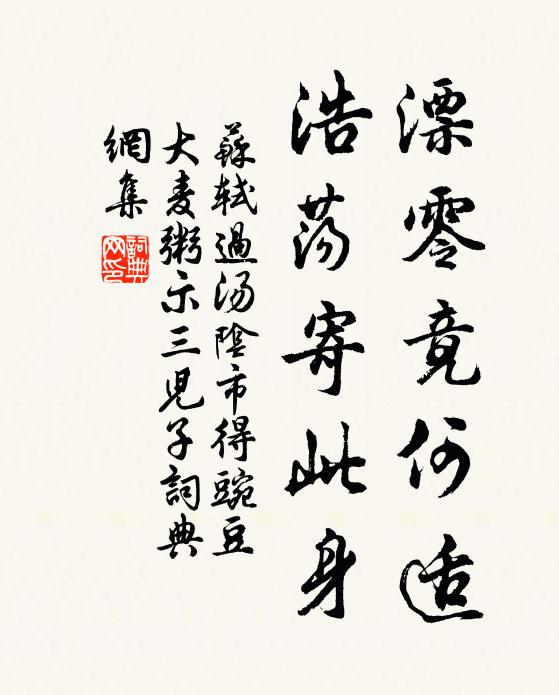 漂零竟何适
浩荡寄此身
蘇軾過湯陰市得豌豆
大麦粥示三児子詞典
網集
詞典网印